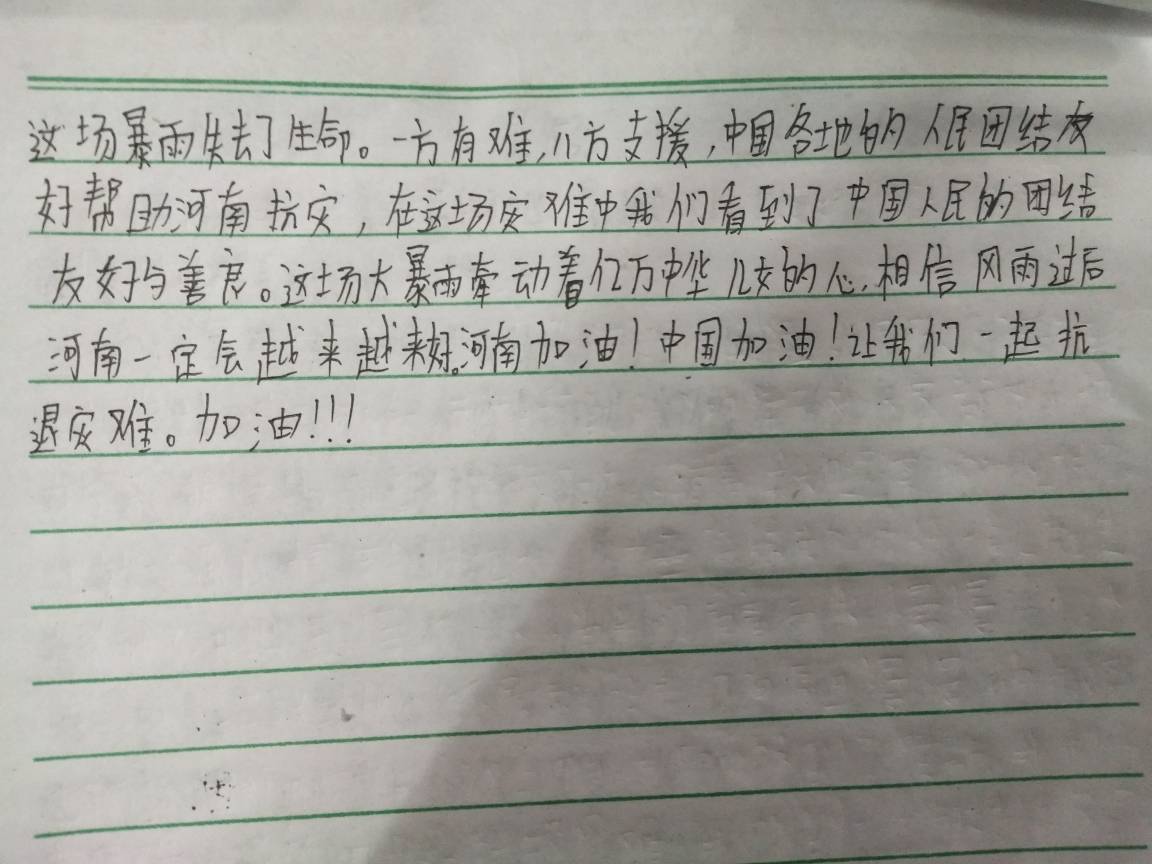 这场暴雨失去了生命。一方有难,八方支援,中国各地的人民团结友
好帮助河南抗灾,在这场灾难中我们看到了中国人民的团结
友好与善良。这场大暴雨牵动着亿万中华儿女的心,相信风雨过后
河南一定会越来越来好。河南加油!中国加油!让我们一起抗
退灾难。加油!!!